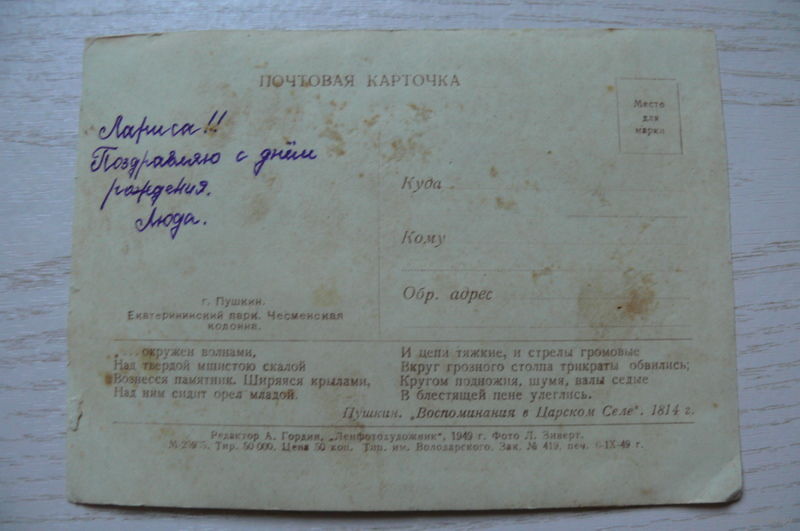 ПОЧТОВАЯ КАРТОЧКА
Место
для
марки
Лариса!!
Поздравляю с днём
рождения.
Люда.
Куда
Кому
Обр. адрес
г. Пушкин.
Екатерининский парк. Чесменская
колонна.
„... окружен волнами,
Над твердой мшистою скалой
Вознесся памятник. Ширяяся крылами,
Над ним сидит орел младой.
И цепи тяжкие, и стрелы громовые
Вкруг грозного столпа трикраты обвились;
Кругом подножия, шумя, валы седые
В блестящей пене улеглись.
Пушкин. „Воспоминания в Царском Селе“. 1814 г.
Редактор А. Гордин. „Ленфотохудожник“, 1949 г. Фото Л. Зиверт.
Тир. 50 000. Цена 50 коп. Тип. им. Володарского. Зак. № 419, печ. 6-IX-49 г.